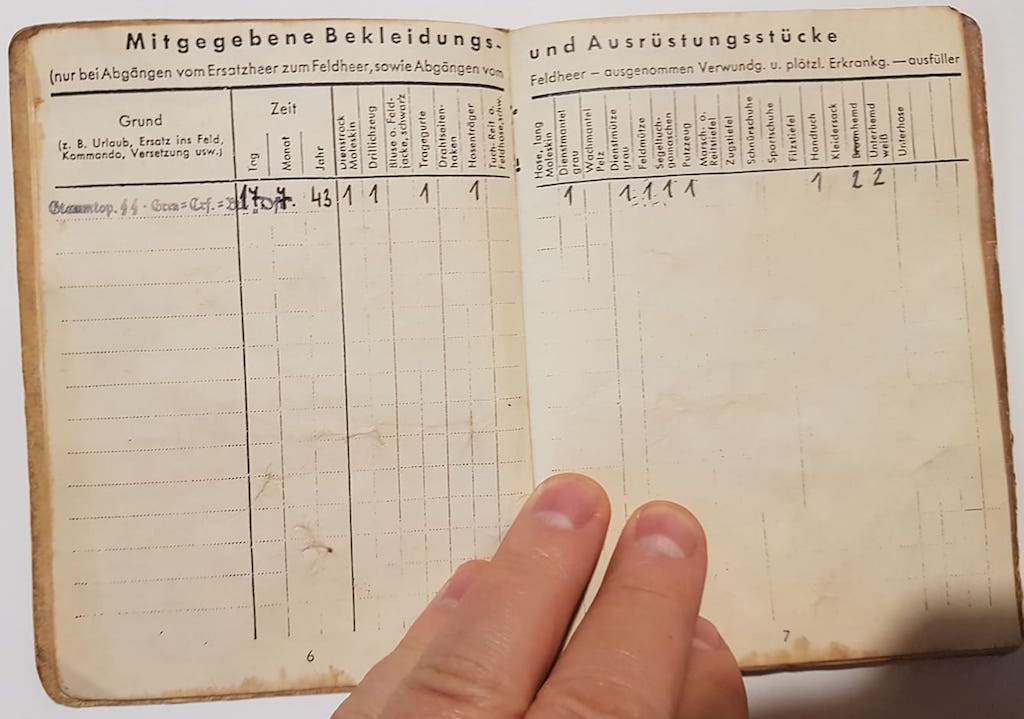 Mitgegebene Bekleidungs- und Ausrüstungsstücke
(nur bei Abgängen vom Ersatzheer zum Feldheer, sowie Abgängen vom Feldheer — ausgenommen Verwundg. u. plötzl. Erkrankg. — ausfüller
Grund
(z. B. Urlaub, Ersatz ins Feld,
Kommando, Versetzung usw.)
Zeit
Tag
Monat
Jahr
Dienstrock
Moleskin
Drillichzeug
Bluse o. Feld-
jacke, schwarz
Tragegurte
Drahtseiten-
haken
Hosenträger
Tuch- Reit o.
Feldhose, schw.
Hose, lang
Moleskin
Dienstmantel
grau
Wachmantel
Pelz
Dienstmütze
grau
Feldmütze
Segeltuch-
gamaschen
Putzzeug
Marsch- o.
Reitstiefel
Zugstiefel
Schnürschuhe
Sportschuhe
Filzstiefel
Handtuch
Kleidersack
hemd
Unterhemd
weiß
Unterhose
17. 7. 43 1 1 1 1 1 1 1 1 1 1 2 2
6
7